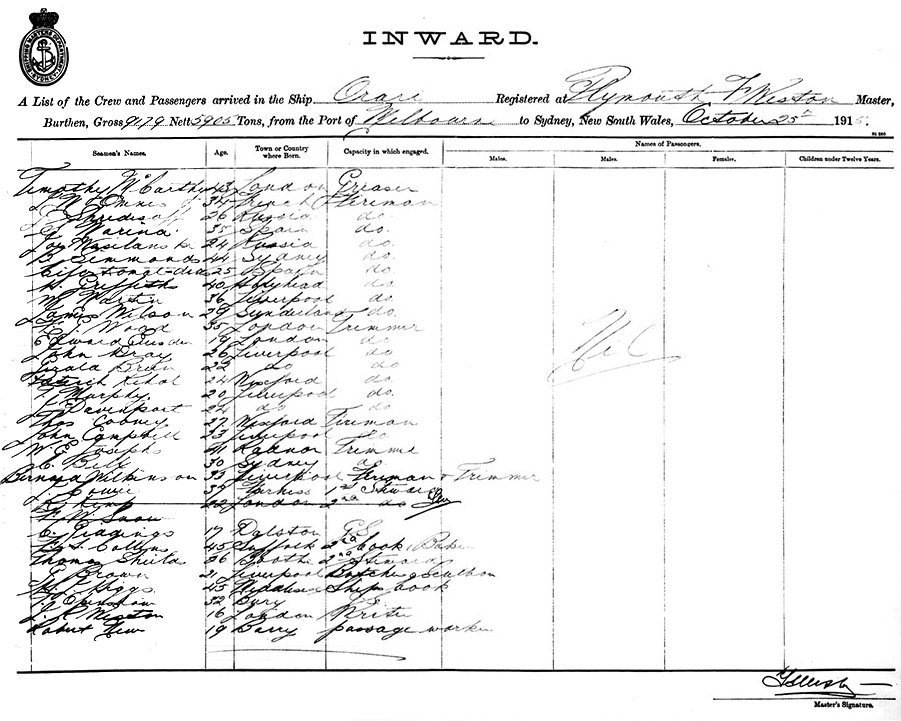 SHIPPING MASTERS DEPARTMENT SYDNEY
INWARD.
A List of the Crew and Passengers arrived in the Ship Orari Registered at Plymouth F Weston Master,
Burthen, Gross 9179 Nett 5905 Tons, from the Port of Melbourn to Sydney, New South Wales, October 25th 1915.
Seamen's Names. Age. Town or Country where Born. Capacity in which engaged. Names of Passengers.
Males. Males. Females. Children under Twelve Years.
Timothy McCarthy 43 London Greaser
34 French Fireman
26 Russia do.
Marina 35 Spain do.
24 Russia do.
B. Simmonds 44 Sydney do.
25 Spain do.
H. Griffiths 40 Holyhead do.
W. Martin 36 Liverpool do.
James Wilson 29 Sunderland do.
Wood 35 London Trimmer
Edward 19 London do
John Gray 26 Liverpool do
22 do do
Patrick 24 Wexford do
Murphy 20 Liverpool do.
J. Davenport 22 do do
Thos Cooney 27 Wexford Fireman
John Campbell 23 Liverpool do
W. E. Josephs 41 Radnor Trimme
C. Bell 30 Sydney do
Bernard Wilkinson 33 Liverpool Fireman & Trimmer
J. 39 1st Steward
R. Kemp 22 London 2nd do
F. W. Snow
C. 17 Dalston G.S.
Collins 45 Suffolk 2nd Cook & Baker
Thomas Shields 26 Bootle 2nd Steward
E. Brown 21 Liverpool Butcher & Scullion
Higgs 43 Ships Cook
32 Bury
J. R. Weston 16 London Writer
Robert Dew 19 Barry passage worker
Nil
Master's Signature.